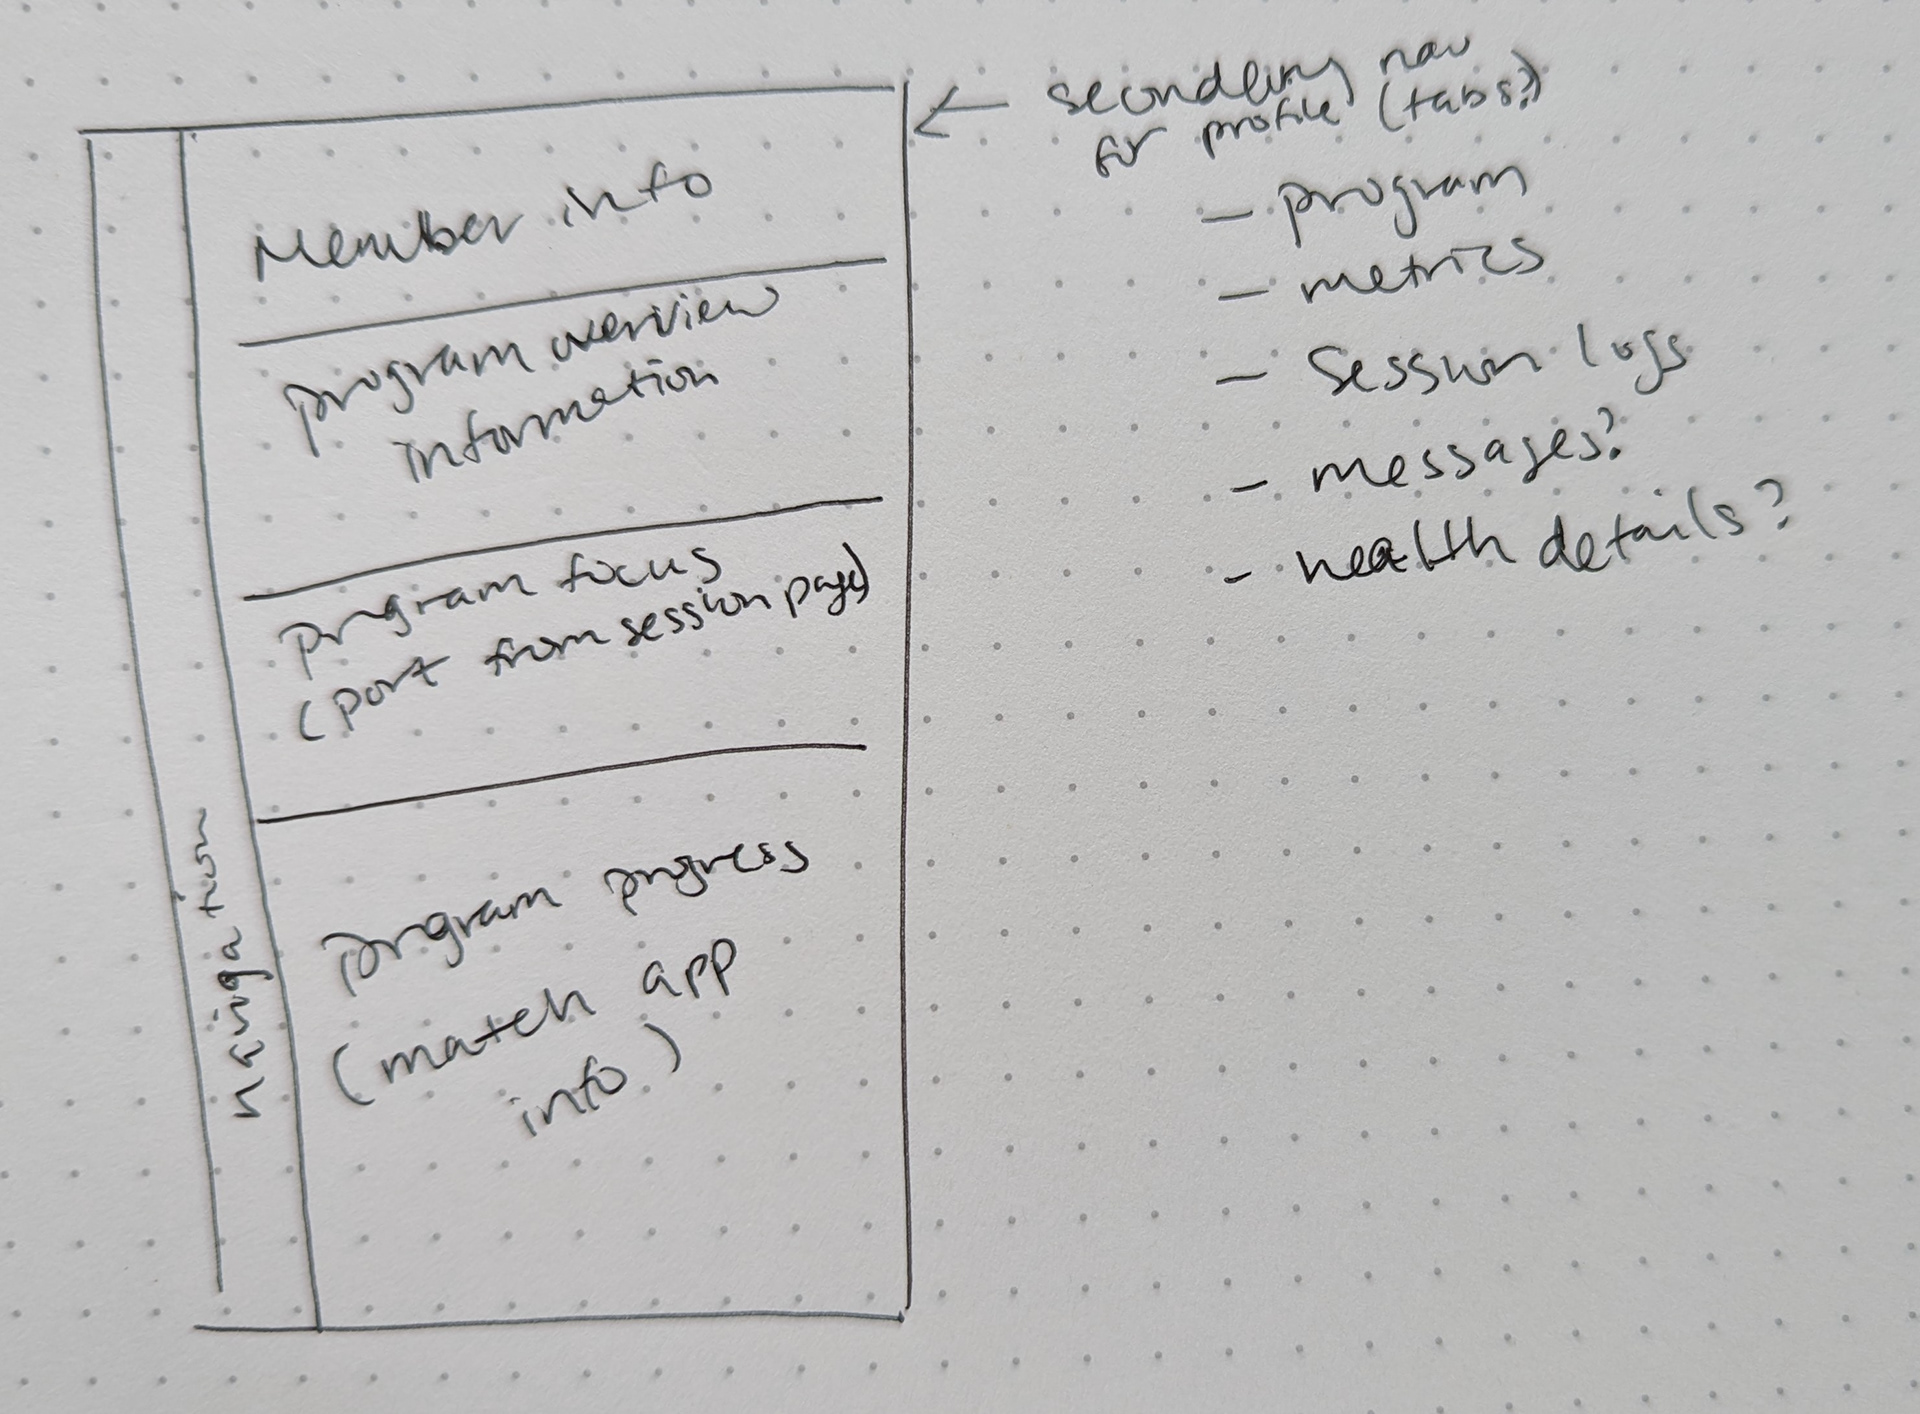 Member info
program overview
information
program focus
(port from session page)
program progress
(match app
info)
navigation
← secondary nav
for profile (tabs?)
- program
- metrics
- Session logs
- messages?
- health details?